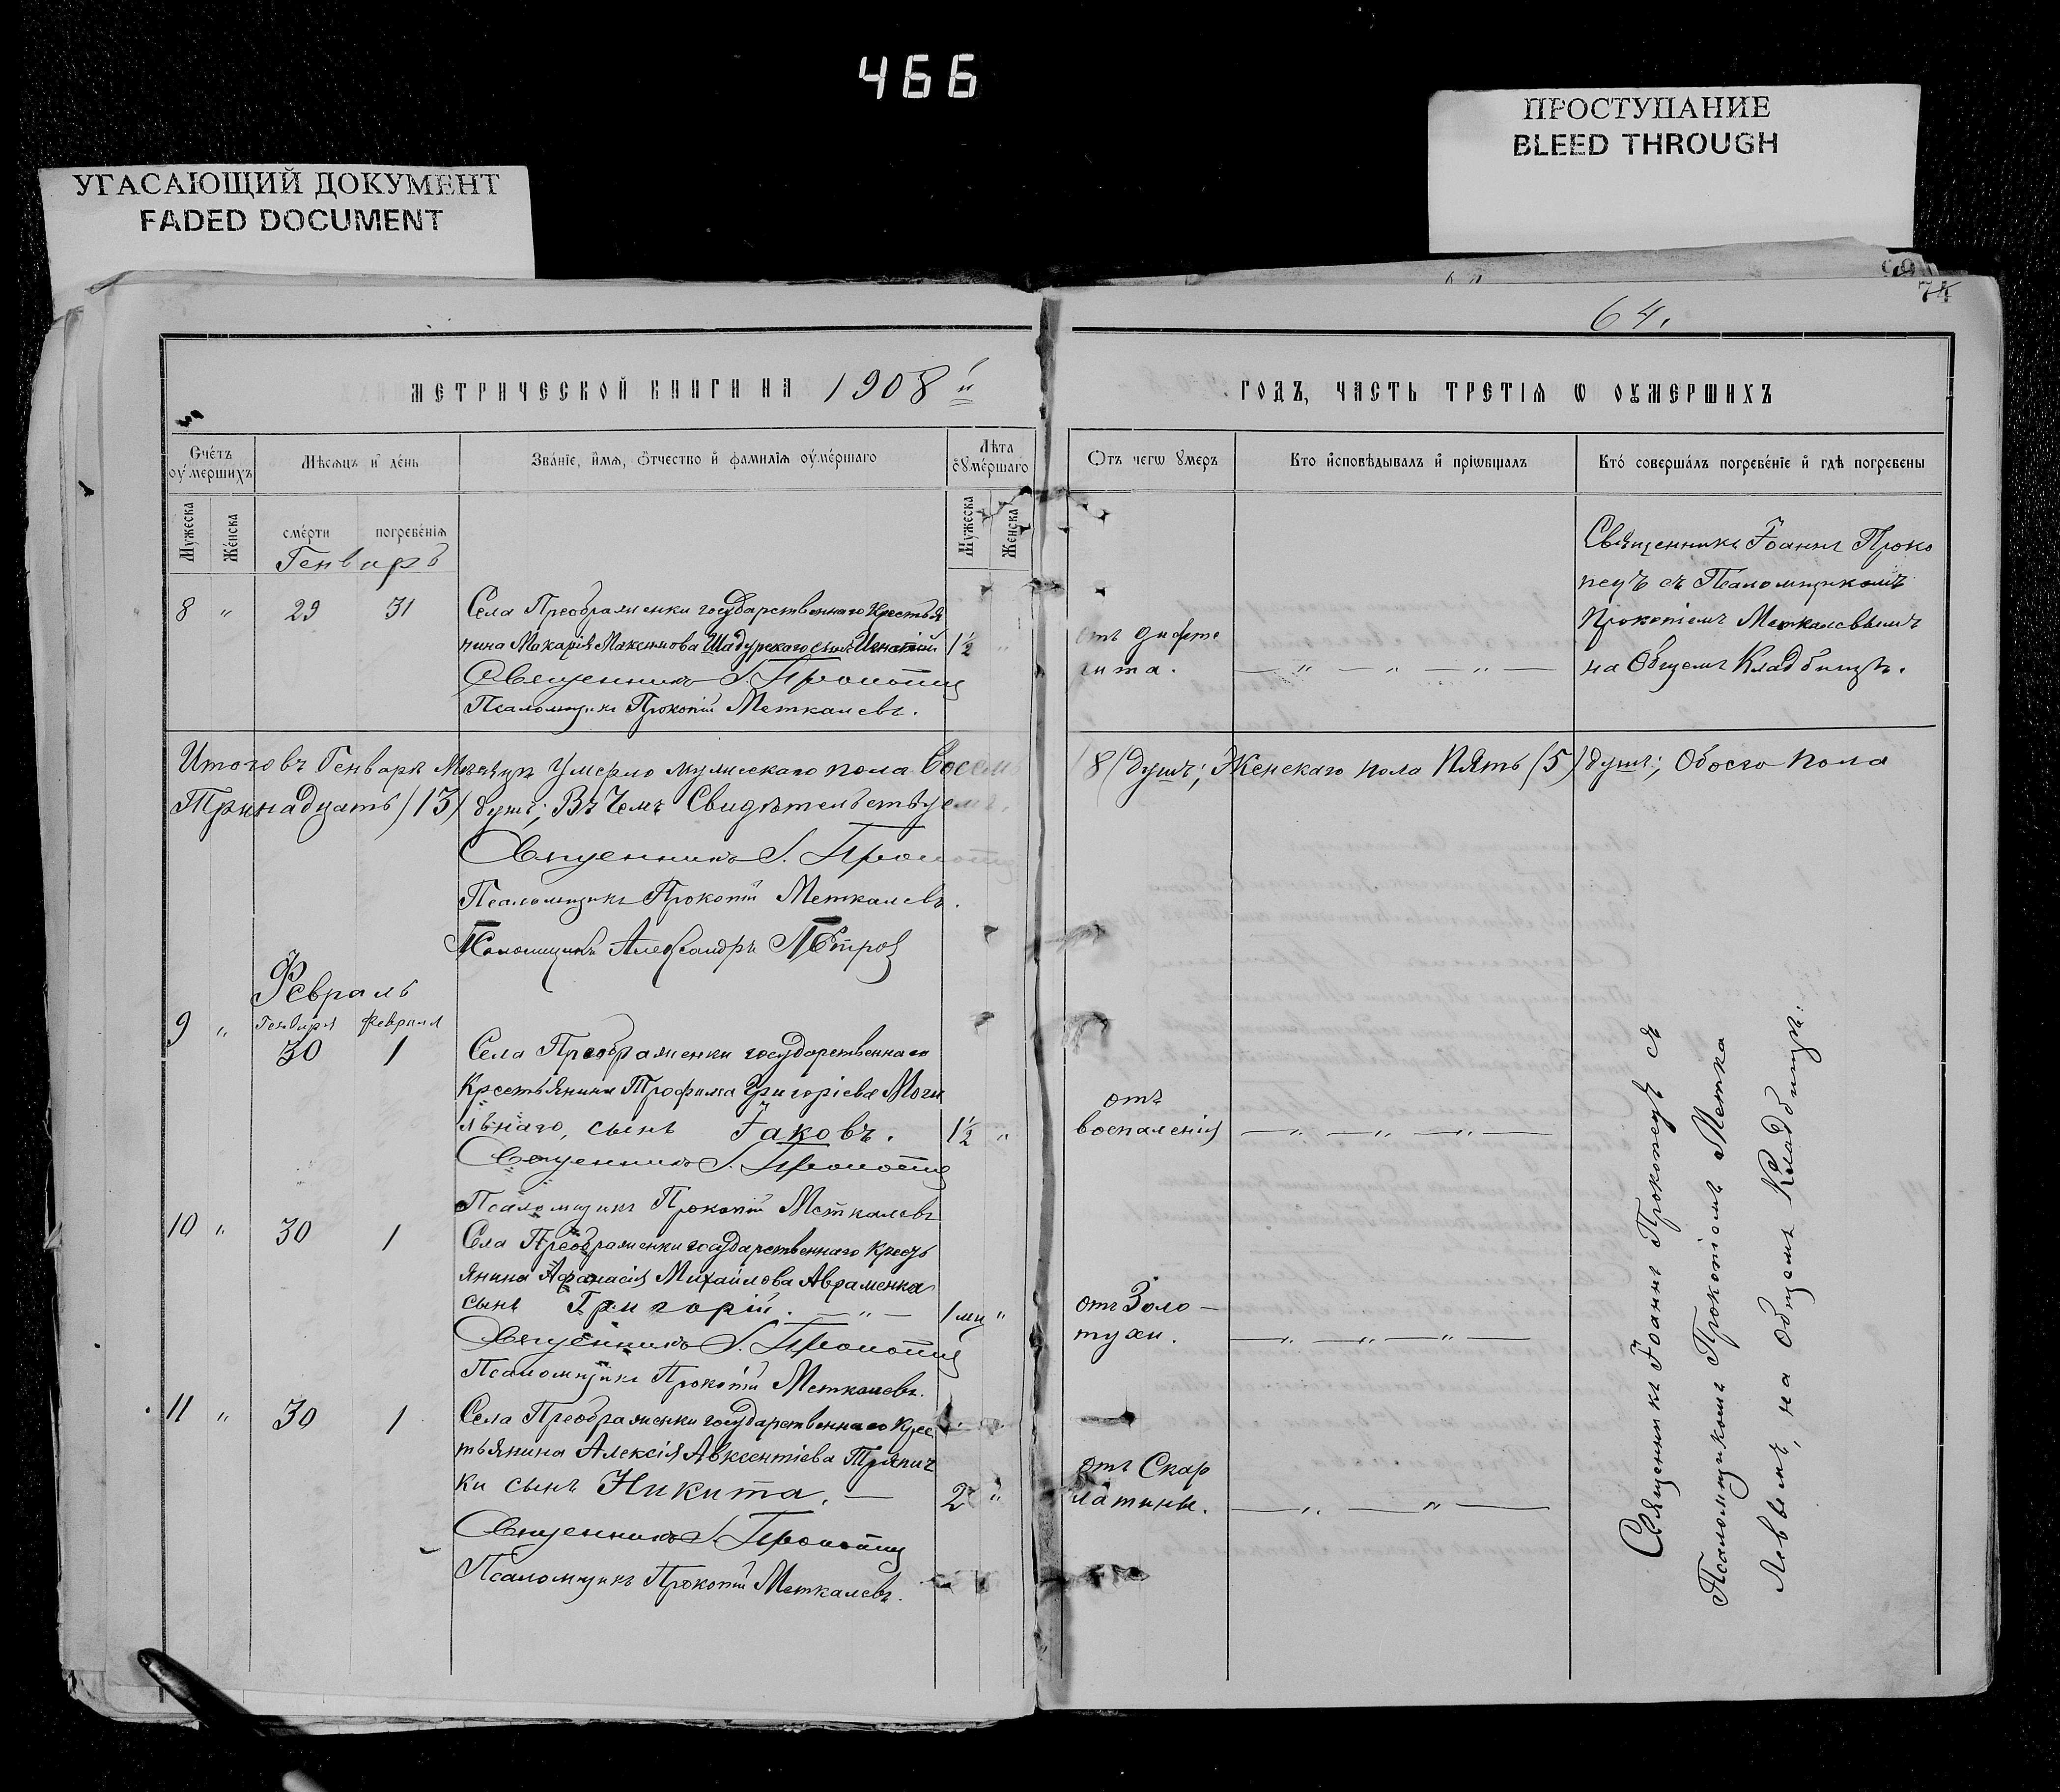 466
УГАСАЮЩИЙ ДОКУМЕНТ
FADED DOCUMENT
ПРОСТУПАНИЕ
BLEED THROUGH
64.
МЕТРИЧЕСКОЙ КНИГИ НА 1908й
ГОДЪ, ЧАСТЬ ТРЕТІѦ Ѡ ОУМЕРШИХЪ
Счетъ оумершихъ
Мѣсяцъ и день
Званіе, имя, отчество и фамилія оумершаго
Лѣта оумершаго
Отъ чегѡ умеръ
Кто исповѣдывалъ и пріѡбщалъ
Кто совершалъ погребеніе и гдѣ погребены
Мужеска
Женска
смерти
погребенія
Мужеска
Женска
Генварь
8 " 29 31
Села Преображенки государственнаго Крестья
нина Макарія Максимова Шадурскаго сынъ Игнатій 1½ "
Священникъ І. Прокопец
Псаломщикъ Прокопій Меткалевъ.
отъ дифте
рита. — " — " — " —
Священникъ Іоаннъ Проко
пецъ съ Псаломщикомъ
Прокопіемъ Меткалевымъ
на Общемъ Кладбищѣ.
Итого въ Генварѣ Мѣсяцѣ Умерло мужескаго пола Восемь (8) душъ; Женскаго пола Пять (5) душъ; Обоего пола
Тринадцать (13) душъ; Въ Чемъ Свидѣтельствуемъ.
Священникъ І. Прокопец
Псаломщикъ Прокопій Меткалевъ.
Псаломщикъ Александръ Петров
Февраль
9 " Генваря Февраля
30 1
Села Преображенки государственнаго
Крестьянина Трофима Григоріева Моги
льнаго, сынъ Іаковъ. 1½ "
Священникъ І. Прокопец
Псаломщикъ Прокопій Меткалевъ
отъ
воспаленія — " — " — " —
10 " 30 1
Села Преображенки государственнаго Кресть
янина Афанасія Михаилова Авраменка
сынъ Григорій. — " — 1 мц "
Священникъ І. Прокопец
Псаломщикъ Прокопій Меткалевъ.
отъ Золо-
тухи. — " — " — " —
11 " 30 1
Села Преображенки государственнаго Крес
тьянина Алексія Авксентіева Тряпич
ки сынъ Никита. — 2 "
Священникъ І. Прокопец
Псаломщикъ Прокопій Меткалевъ.
отъ Скар
латины. — " — " —
Священникъ Іоаннъ Прокопецъ съ
Псаломщикомъ Прокопіемъ Метка
левымъ, на Общемъ Кладбищѣ.